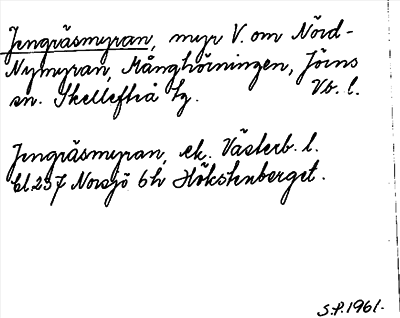 Jengräsmyran, myr V. om Nörd-
Nymyran, Långträningen, Jörns
sn. Skellefteå tg. Vb. l.
Jengräsmyran, ek. Västerb. l.
bl. 237 Norsjö 6h Hökstenberget.
S.P. 1961.